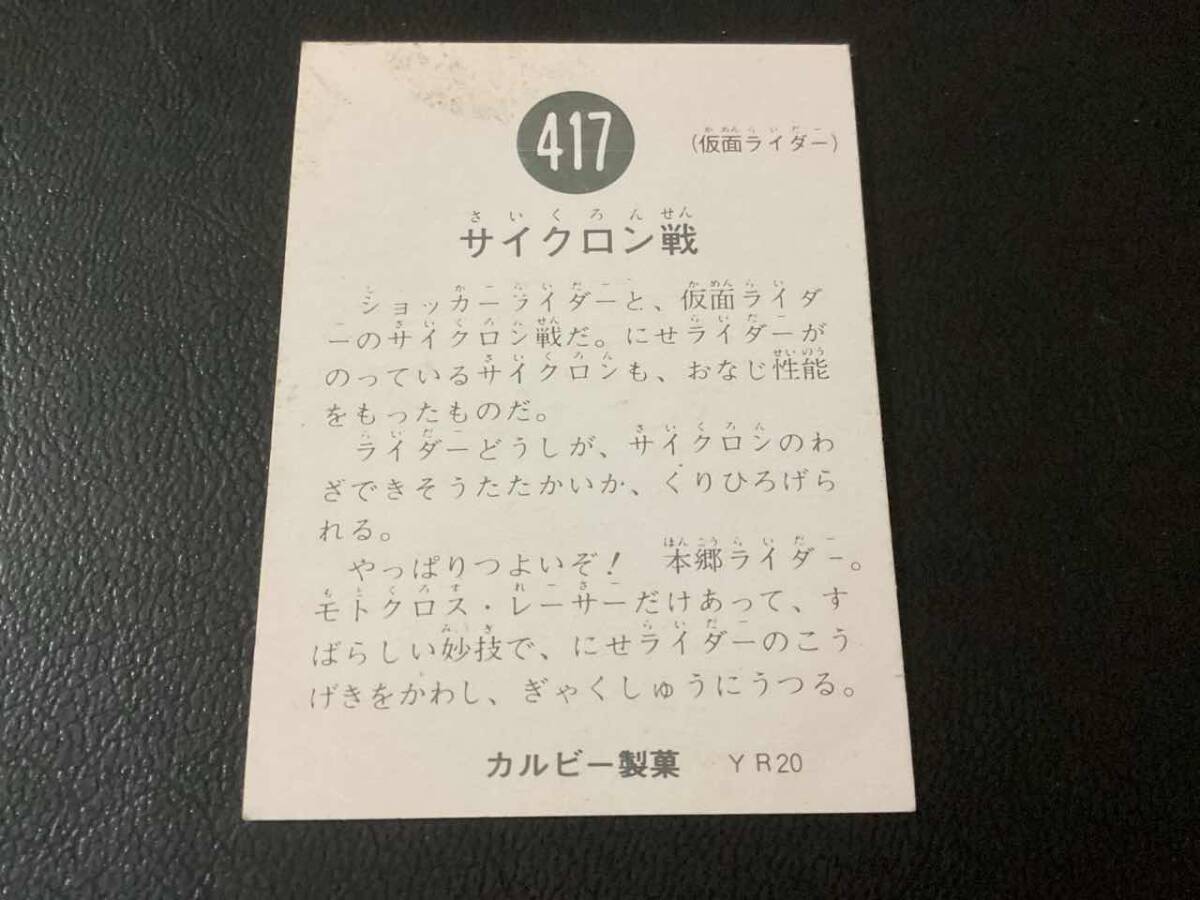 417
(仮面ライダー)
サイクロン戦
ショッカーライダーと、仮面ライダ
ーのサイクロン戦だ。にせライダーが
のっているサイクロンも、おなじ性能
をもったものだ。
ライダーどうしが、サイクロンのわ
ざできそうたたかいか、くりひろげら
れる。
やっぱりつよいぞ! 本郷ライダー。
モトクロス・レーサーだけあって、す
ばらしい妙技で、にせライダーのこう
げきをかわし、ぎゃくしゅうにうつる。
カルビー製菓 YR20